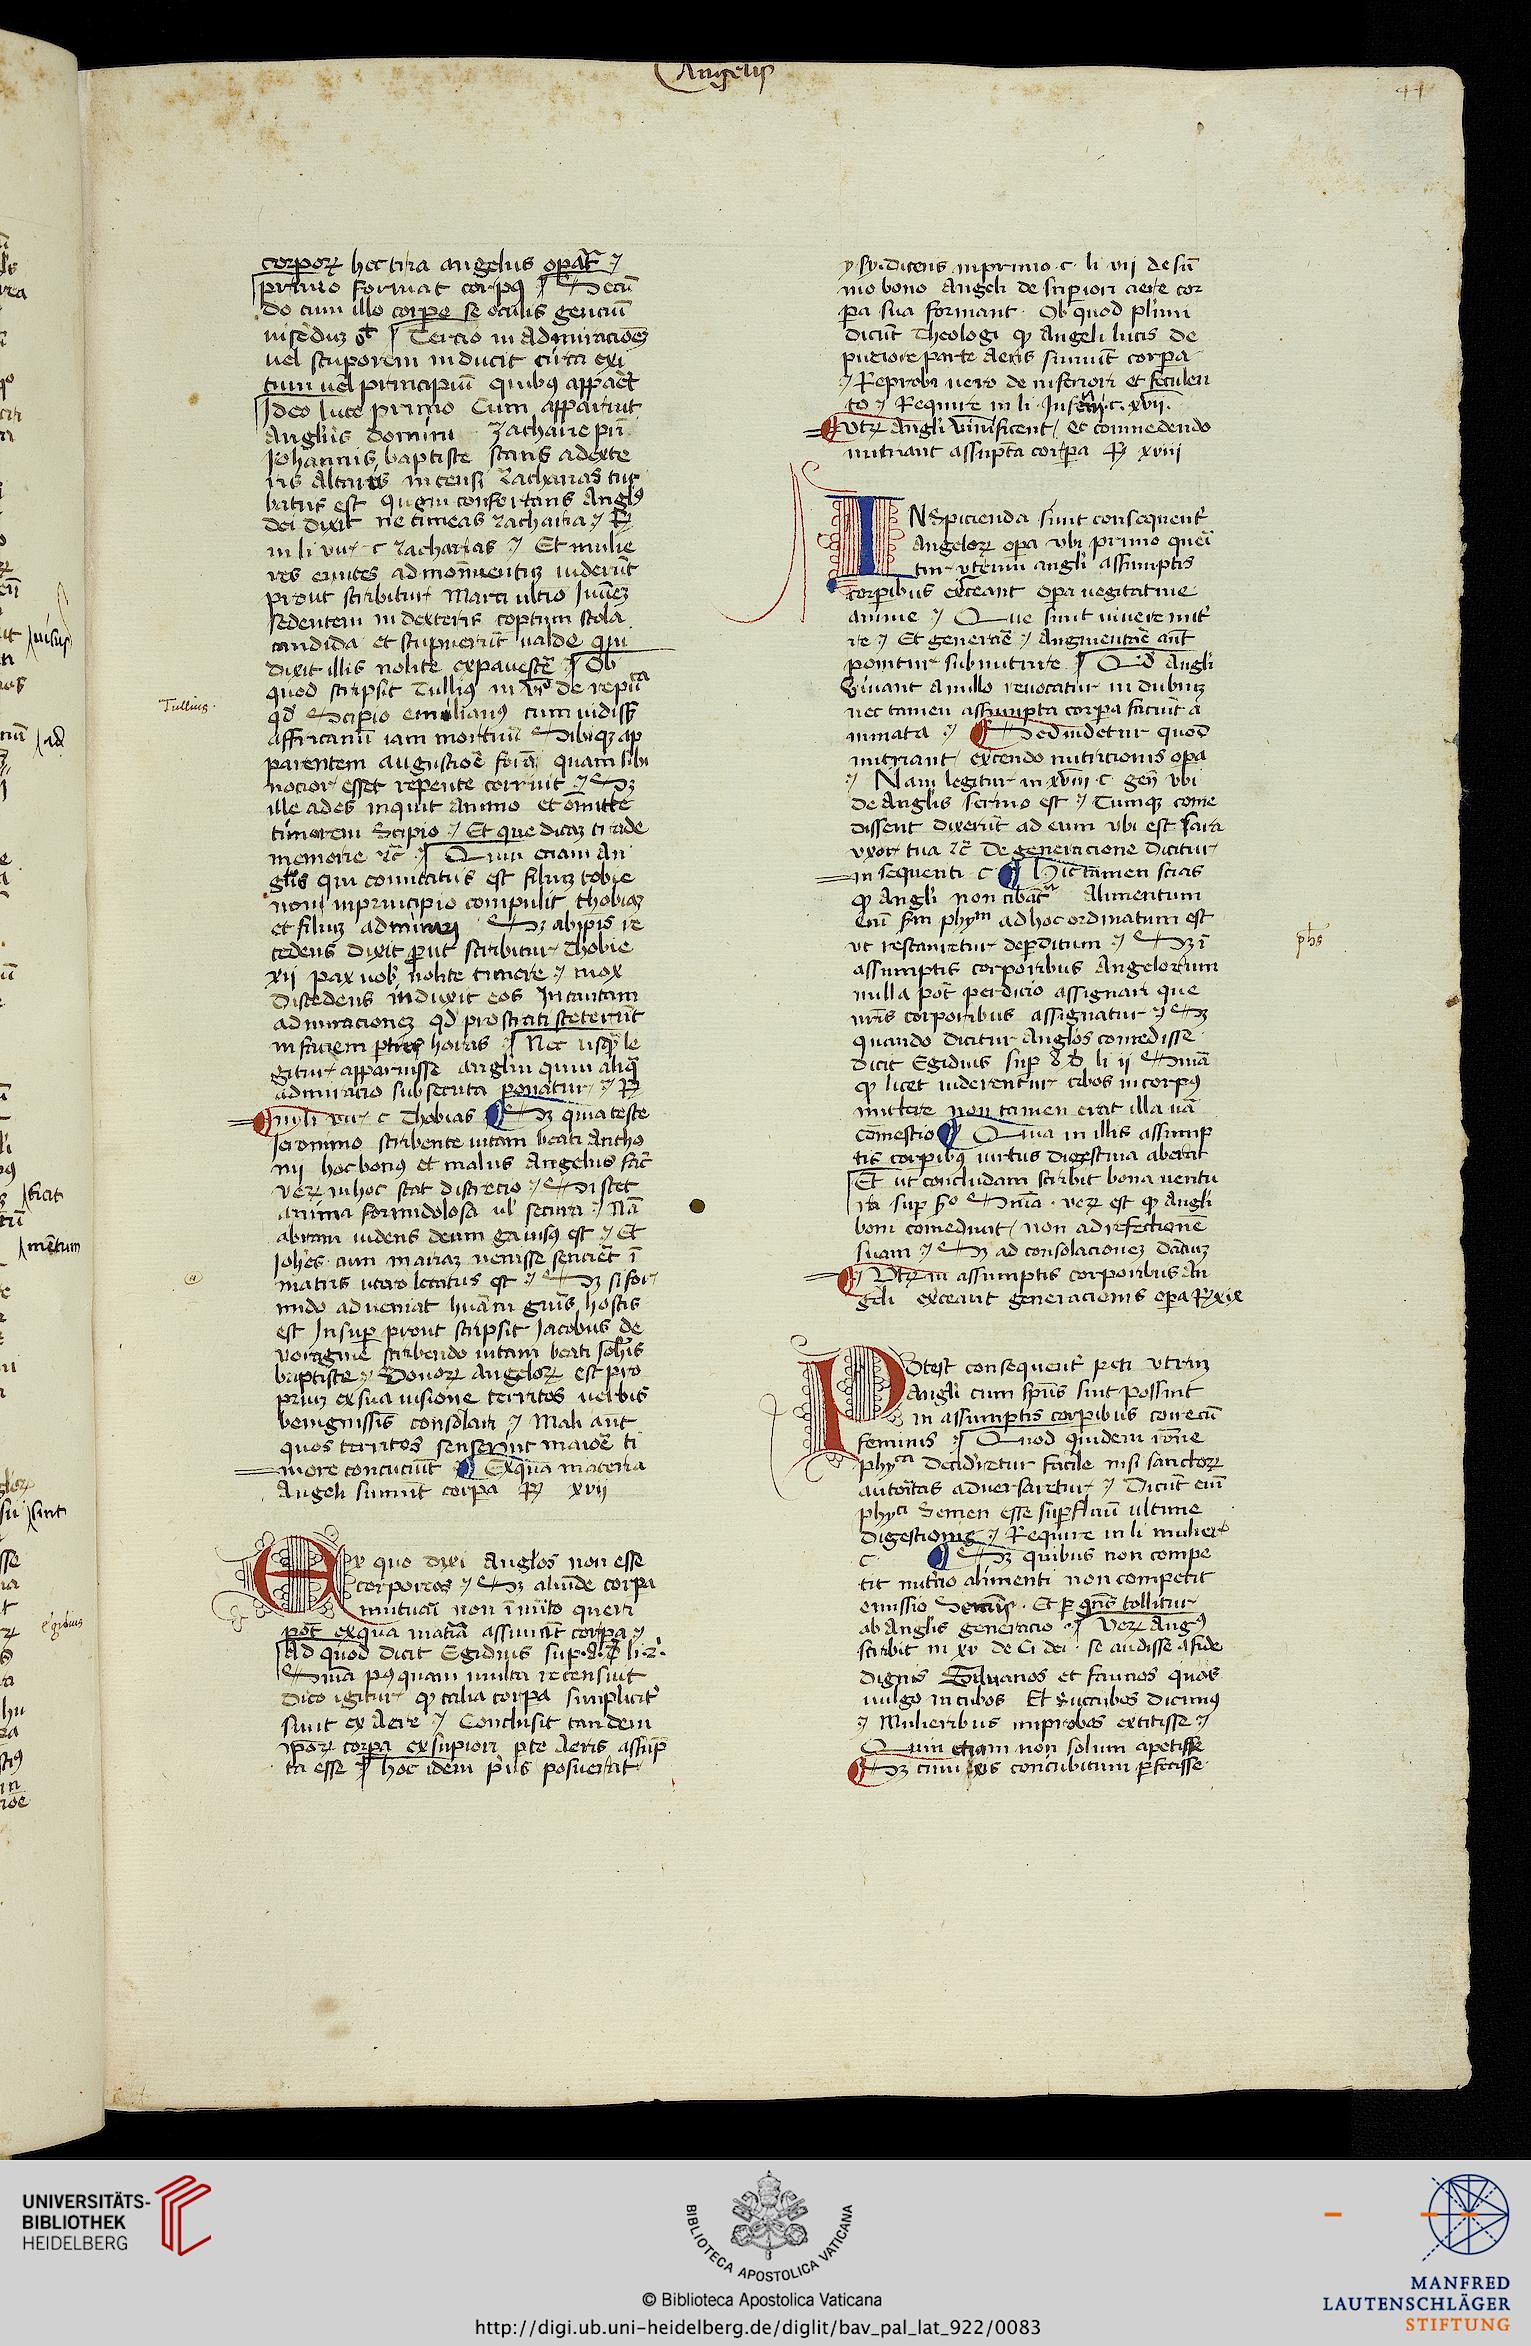 Angelis
44
corporꝝ hec tria angelus opat᷑
primo format corpꝰ Secū
do cum illo corpore se oculis genciū
Tercio in admiracionē
uel stuporem inducit circa exi
tum uel principiū quibꝰ apparet
Ideo luce primo Cum apparuit
Angelus domini Zacharie pri
Johannis baptiste stans a dextr
ris altaris incensi Zacharias tur
batus est quem confortans Anglꝰ
dei dixit ne timeas zacharia
in li viii c zacharias Et mulie
res euntes ad monumentū uiderūt
prout scribitur Marci ultio Juuenē
sedentem in dexteris coptum stola
candida et stupuerūt ualde qui
dixit illis nolite expauescere Ob
quod scripsit Tulliꝰ in vi de repu ca
qđ Scipio emilianꝰ cum uidisset
affricanū iam mortuū Sibiqꝫ ap
parentem augustiorē forā quam sibi
nocior esset repente corruit Sꝫ
ille ades inquit animo et omitte
timorem Scipio Et que dicaꝫ trade
memorie ꝛc̄ Quin etiam An
glus qui comitatus est filiuꝫ tobie
non in principio compulit thobiaꝫ
et filiuꝫ admirari Sꝫ ab ipis re
cedens dixit put scribitur Thobie
xii pax uob nolite timere mox
Discedens induxit eos in tantam
admiracioneꝫ qđ prostrati steterūt
in faciem p tres horas Nec usqꝫ le
gitur apparuisse anglm quin aliq
admiracio subsecuta ponatur
in li vii c Thobias Sꝫ quia teste
Jeronimo scribente uitam beati Antho
nii hoc bonꝰ et malus Angelus fac
veꝝ in hoc stat discrecio Si stet
anima formidolosa ul secura Nā
abram uidens deum gauisꝰ est Et
Johēs cum mariaꝫ uenisse sencieet ī
matris utero letatus est Sꝫ si for
mido adueniat hūam gnis hostis
est Insup prout scripsit Jacobus de
voragine scribendo uitam beati Johīs
baptiste Bonoꝝ angeloꝝ est pro
priuꝫ ex sua uisione territos uerbis
benignissis consolari Mali aut
quos territos senserint maiorē ti
more concuciunt Ex qua materia
Angeli sumunt corpa xvii
Tullius
Ex quo dixi Anglos non esse
corporeos Sꝫ aliunde corpa
mutuari non īmito queri
pōt ex qua matia assumāt corpa
Ad quod dicit Egidius sup
Snīa pꝰquam multa recensuit
Dico igitur qꝫ talia corpa simplicit
sunt ex Aere Conclusit tandem
ipoꝝ corpa ex supiori pte Aeris assup
ta esse hoc idem prius posuerat
ysydicens in primo c li vii de sū
mo bono Angeli de supiori aere cor
pa sua formant Ob quod plimi
dicūt Theologi qꝫ angeli lucis de
puriore parte Aeris sumūt corpa
Reprobi uero de inferiori et feculen
to Require in li Inferni c xvii
Vtꝝ Angli viuificent et commedendo
nutriant assupta corpa xviii
INspicienda sunt consequent
angeloꝝ opa vbi primo queri
tur utrum angli assumptis
corpibus exceant opa uegitatiue
anime Que sunt uiuere nut
re Et generare Augmentare aut
ponitur sub nutrire Qđ Angli
viuant a nullo reuocatur in dubiuꝫ
nec tamen assumpta corpa faciūt a
nimata Sed uidetur quod
nutriant excendo nutricionis opa
Nam legitur in xviii c geñ vbi
de Anglis sermo est Cumqꝫ come
dissent dixerūt ad eum vbi est Sara
vxor tua ꝛc̄ De generacione dicitur
in sequenti c Hic tamen scias
qꝫ Angli non cibant Alimentum
eni sm phym ad hoc ordinatum est
ut restauretur deperditum Sꝫ ī
assumptis corporibus Angelorum
nulla pot perdicio assignari que
nris corporibus assignatur Sꝫ
quando dicitur Anglos comedisse
dicit Egidius sup li ii Sniā
qꝫ licet uiderentur cibos in corpꝰ
mittere non tamen erat illa uā
comestio Quia in illis assump
tis corpibꝰ uirtus digestiua aberat
Et ut concludam scribit bonauentu
ra sup Sniā veꝝ est qꝫ Angli
boni comedunt non ad refectionē
suam Sꝫ ad consolacioneꝫ
Vtꝝ in assumptis corporibus an
geli exceant generacionis opa xix
phs
Potest consequent peti vtrm
Angli cum spus sint possint
in assumptis corpibus coire cū
feminis Quod quidem rōne
phyca decideretur facile nisi sanctoꝝ
autoritas aduersaretur Dicūt eni
phyci Semen esse supfluū ultime
digestionis Require in li mulier
c Sꝫ quibus non compe
tit nutrīo alimenti non competit
emissio Seminis Et p gñs tollitur
ab Anglis generacio Veꝝ Augꝰ
scribit in xv de Ci dei se audisse a fide
dignis Siluanos et faunos quos
uulgo incubos Et Succubos dicimꝰ
Mulieribus improbos extitisse
Quin etiam non solum apetisse
Sꝫ cum ipis concubitum pfecisse
UNIVERSITÄTS-
BIBLIOTHEK
HEIDELBERG
BIBLIOTECA APOSTOLICA VATICANA
© Biblioteca Apostolica Vaticana
http://digi.ub.uni-heidelberg.de/diglit/bav_pal_lat_922/0083
MANFRED
LAUTENSCHLÄGER
STIFTUNG